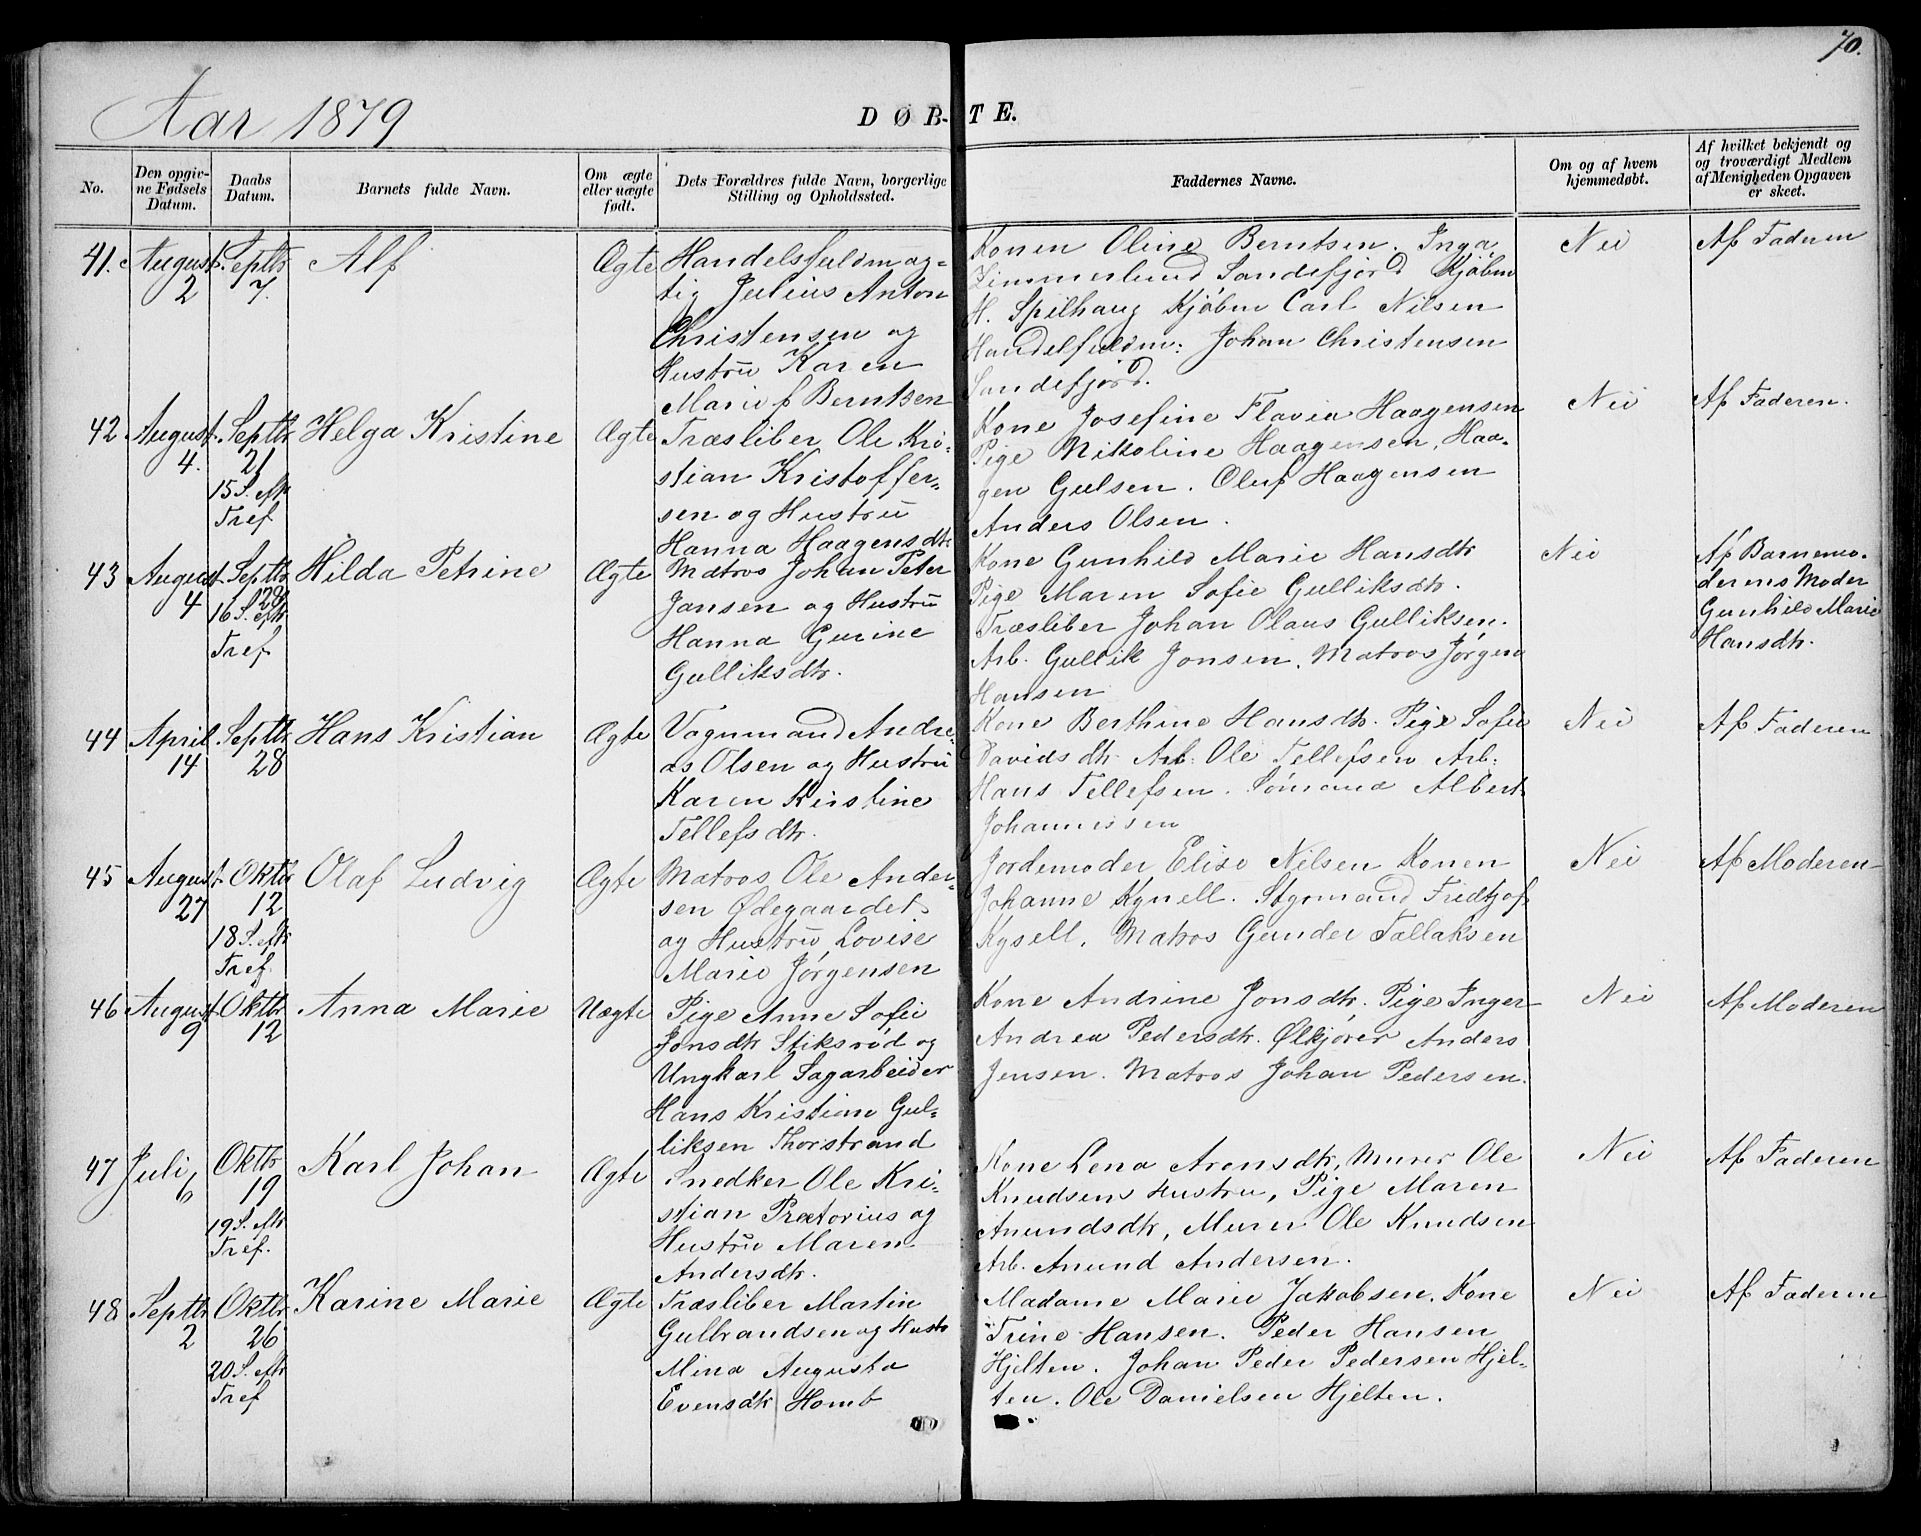 70.
Aar 1879
DØBTE.
No.
Den opgiv-
ne Fødsels
Datum.
Daabs
Datum.
Barnets fulde Navn.
Om ægte
eller uægte
født.
Dets Forældres fulde Navn, borgerlige
Stilling og Opholdssted.
Faddernes Navne.
Om og af hvem
hjemmedøbt.
Af hvilket bekjendt og
og troværdigt Medlem
af Menigheden Opgaven
er skeet.
41.
August
2
Septbr
7.
Alf
Ægte
Handelsfuldmæg-
tig Julius Anton
Christensen og
Hustru Karen
Marie f Berntsen
Konen Oline Berntsen. Inga
Zimmerlund Sandefjord Kjøbm
H. Spilhaug Kjøbm Carl Nilsen
Handelfuldm: Johan Christensen
Sandefjord.
Nei
Af Faderen
42.
August
4.
Septbr
21
15 S. eftr
Tref
Helga Kristine
Ægte
Træsliber Ole Kri-
stian Kristoffer-
sen og Hustru
Hanna Haagensdtr
Kone Josefine Flavia Haagensen
Pige Nikoline Haagensen, Haa-
gen Gulsen. Oluf Haagensen
Anders Olsen.
Nei
Af Faderen.
43
August
4
Septbr
28
16 S. eftr
Tref
Hilda Petrine
Ægte
Matros Johan Peter
Jansen og Hustru
Hanna Gurine
Gulliksdtr.
Kone Gunhild Marie Hansdtr
Pige Maren Sofie Gulliksdtr.
Træsliber Johan Olaus Gulliksen.
Arb. Gullik Jonsen, Matros Jørgen
Hansen
Nei
Af Barnemo-
derens Moder
Gunhild Marie
Hansdtr.
44
April
14
Septbr
28
Hans Kristian
Ægte
Vognmand Andre-
as Olsen og Hustru
Karen Kristine
Tellefsdtr.
Kone Berthine Hansdtr. Pige Sofie
Davidsdtr. Arb. Ole Tellefsen Arb.
Hans Tellefsen. Sømand Albert
Johannessen
Nei
Af Faderen
45
August
27
Oktbr
12
18 S. eftr
Tref.
Olaf Ludvig
Ægte
Matros Ole Ander-
sen Ødegaardet
og Hustru Lovise
Marie Jørgensen
Jordemoder Elise Nilsen Konen
Johanne Kysell. Styrmand Fredtjof
Kysell, Matros Gunder Tallaksen
Nei
Af Moderen
46
August
9
Oktbr
12
Anna Marie
Uægte
Pige Anne Sofie
Jonsdtr Stiksrød og
Ungkarl Sagarbeider
Hans Kristian Gul-
liksen Thorstrand
Kone Andrine Jonsdtr. Pige Inger
Andrea Pedersdtr. Ølkjører Anders
Jensen. Matros Johan Pedersen.
Nei
Af Moderen
47
Juli
6
Oktbr
19
19 S. eftr
Tref.
Karl Johan
Ægte
Snedker Ole Kri-
stian Prætorius og
Hustru Maren
Andersdtr.
Kone Lena Aronsdtr, Murer Ole
Knudsens Hustru, Pige Maren
Anundsdtr, Murer Ole Knudsen
Arb. Anund Andersen.
Nei
Af Faderen
48
Septbr
2
Oktbr
26
20 S. eftr
Tref
Karine Marie
Ægte
Træsliber Martin
Gulbrandsen og Hustr
Mina Augusta
Evensdtr Homb
Madame Marie Jakobsen. Kone
Trine Hansen. Peder Hansen
Hjelten. Johan Peder Pedersen Hjel-
ten. Ole Danielsen Hjelten.
Nei
Af Faderen